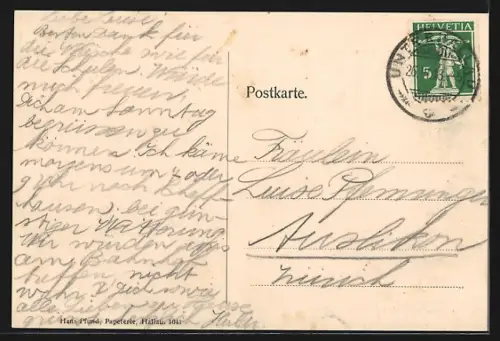 Liebe Luise!
Besten Dank für
die Wäsche wie für
die Schulen. Würde
mich freuen,
Dich am Sonntag
begrüssen zu
können. Ich käme
morgens um 7 oder
9 Uhr nach
hausen. bei gün-
stiger Witterung
Wir würden uns
am Bahnhof
treffen, nicht
wahr? Dich sowie
alle
Postkarte.
HELVETIA
5
UNTER
26
Fräulein
Luise Pfenninger
Auslikon
Zürich
Hans Pfund, Papeterie, Hallau.